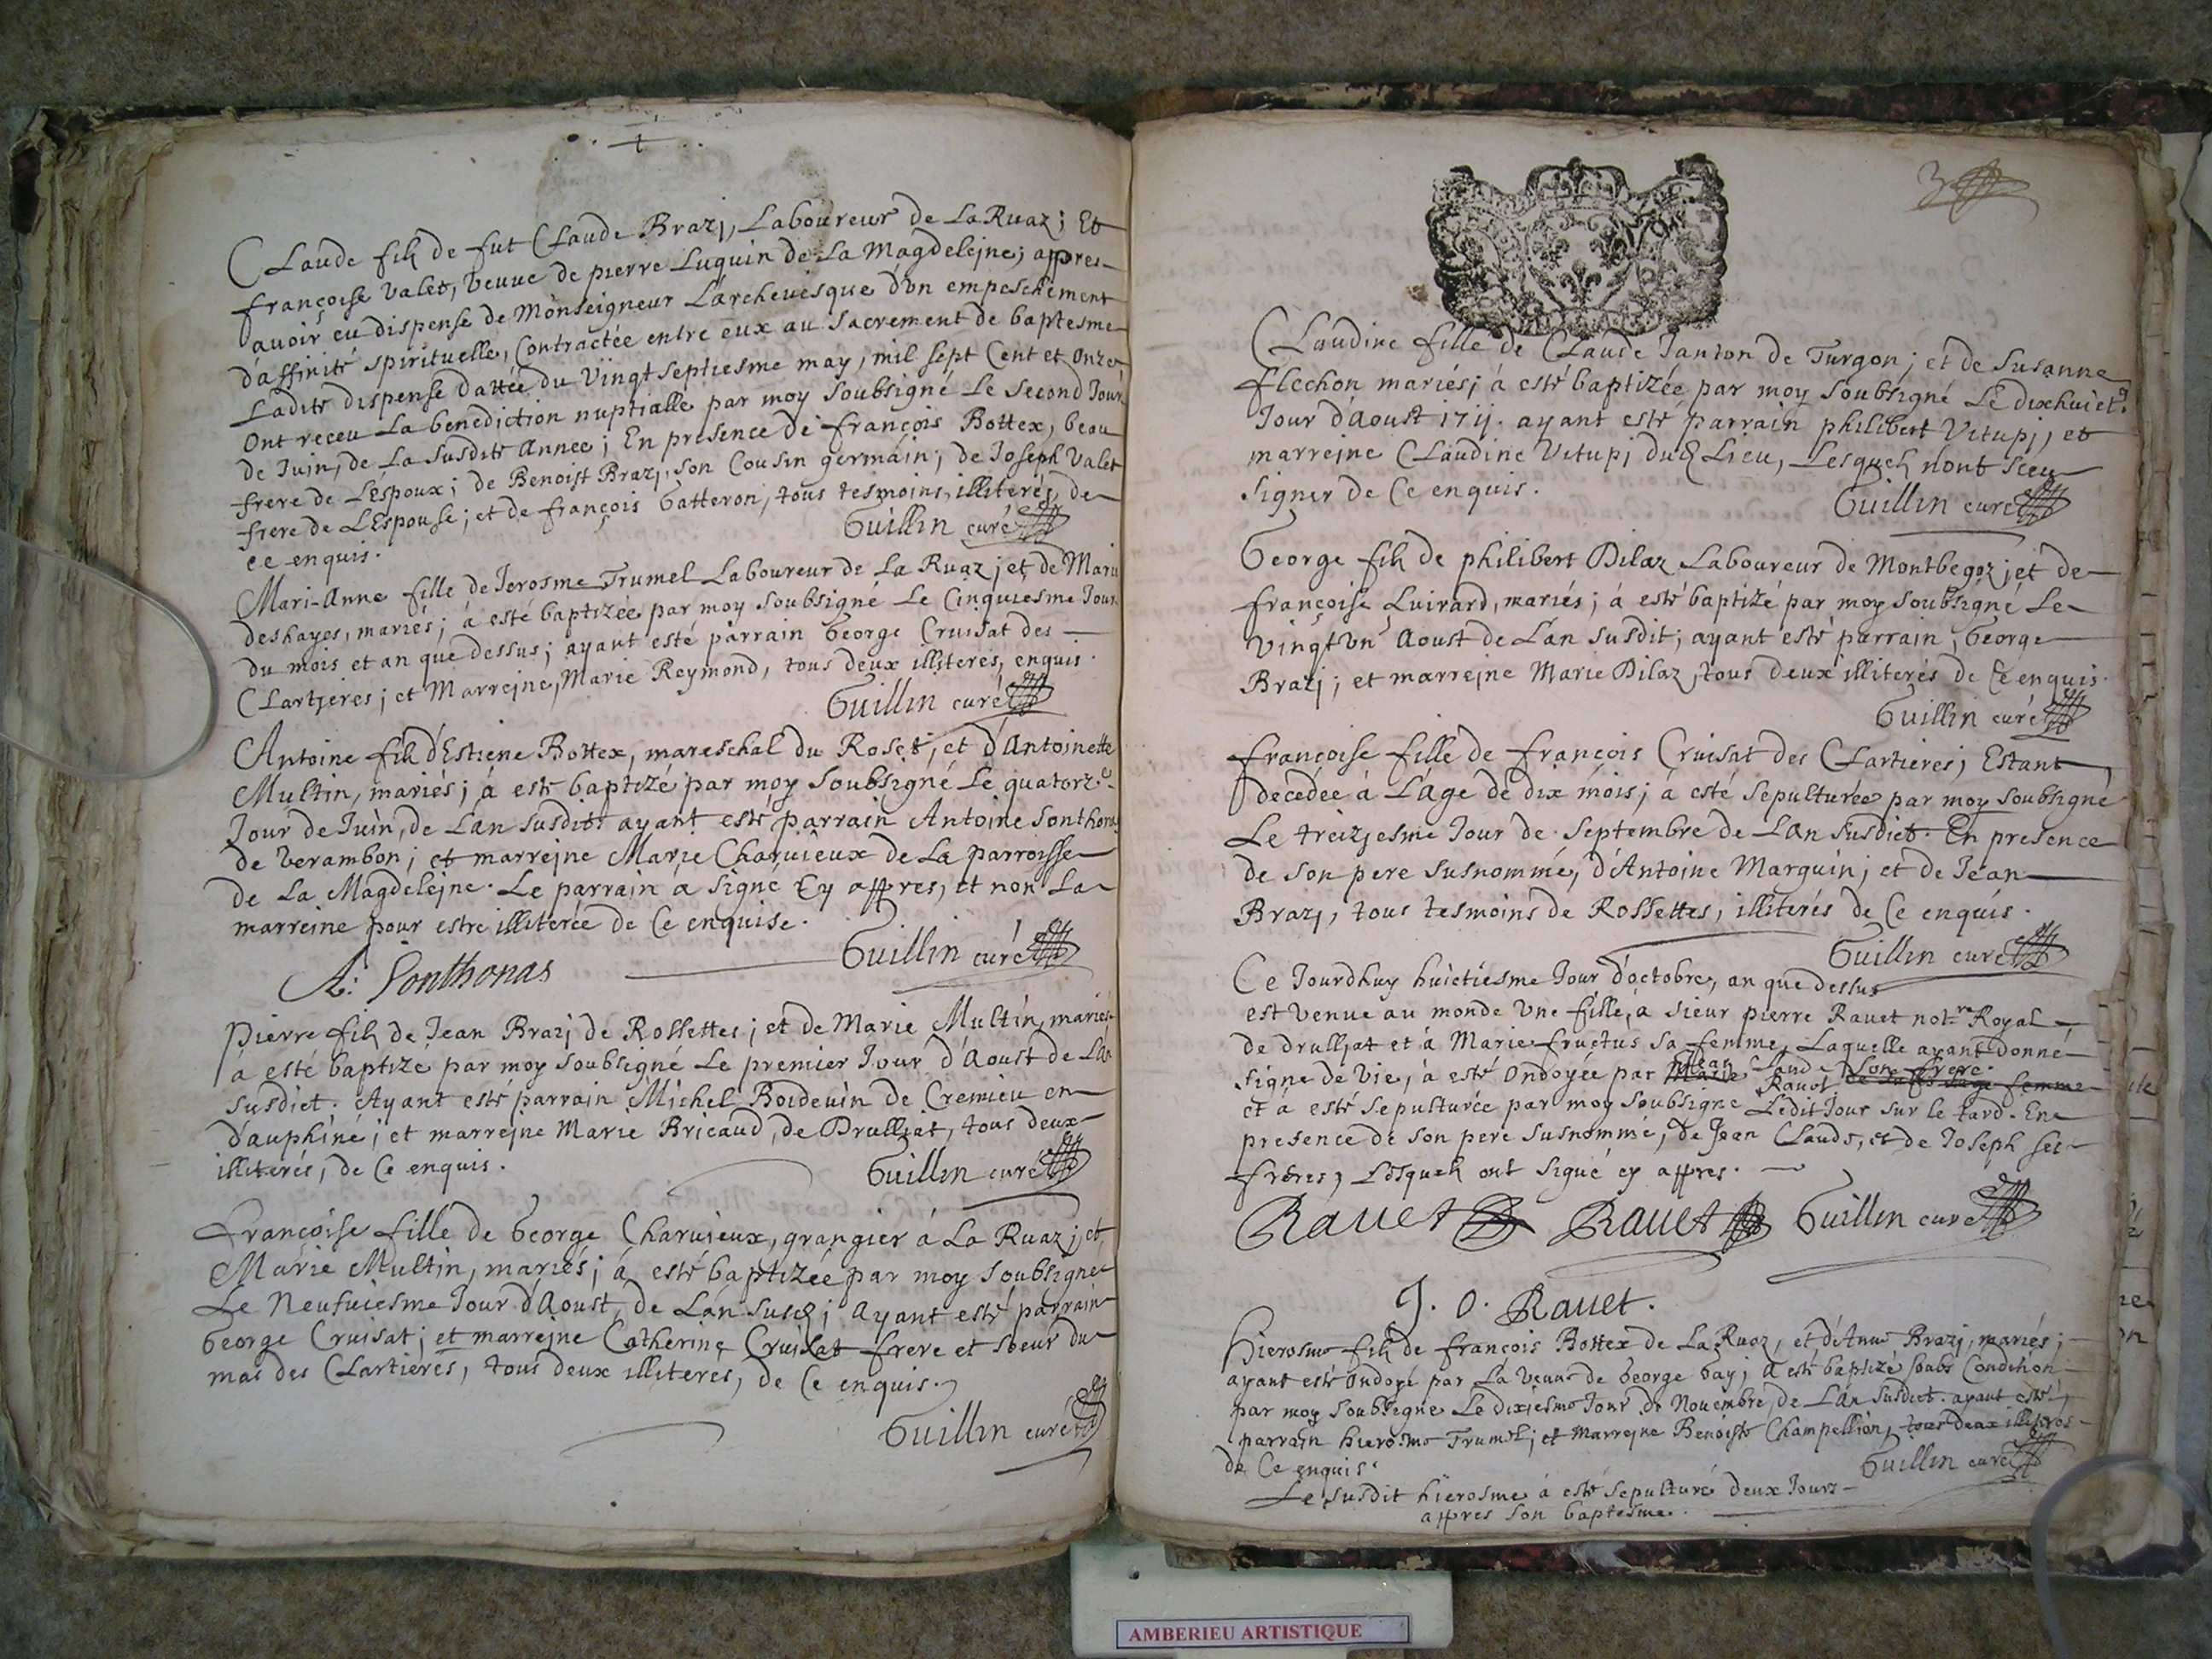 Claude fils de fut Claude Brazj, Laboureur de La Ruaz; Et
françoise valet, veuve de pierre Luquin de La Magdelejne; appres
avoir eu dispense de Monseigneur L'archevesque d'vn empeschement
d'affinité spirituelle, Contractée entre eux au Sacrement de baptesme
Ladite dispense dattée du Vingt septiesme may, mil sept Cent et onze
Ont receu La benediction nuptialle par moy Soubsigné Le Second Jour
de Juin, de La susdite Annee; En presence de françois Bottex, beau
frere de L'espoux; de Benoist Brazj, son Cousin germain; de Joseph Valet
frere de L'Espouse; et de françois Gatteron; tous tesmoins, illiterés, de
ce enquis.
Guillin curé
Mari-Anne fille de Jerosme Trumel Laboureur de La Ruaz; et de Marie
deshayes, mariés; à esté baptizée par moy Soubsigné Le Cinquiesme Jour
du mois et an que dessus; ayant esté parrain George Cruisat des
Clartjeres; et Marrejne, Marie Reymond, tous deux illiteres, enquis.
Guillin curé
Antoine fils d'Estiene Bottex, mareschal du Roset; et d'Antoinette
Multin, mariés; à esté baptizé par moy Soubsigné Le quatorz.e
Jour de Juin, de L'an susdit ayant esté parrain Antoine Sonthonas
de Verambon; et marrejne Marie Charvieux de La parroisse
de La Magdelejne. Le parrain à Signé Cy appres, et non La
marreine pour estre illiterée de Ce enquise.
Guillin curé
A: Sonthonas
Pierre fils de Jean Brazj de Rossettes; et de Marie Multin, mariés
à esté baptizé par moy Soubsigné Le premier Jour d'Aoust de L'an
susdict. Ayant esté parrain Michel Boidevin de Cremieu en
dauphiné; et marrejne Marie Bricaud, de Drulljat, tous deux
illiterés, de Ce enquis.
Guillin curé
Françoise fille de George Charvieux, grangier à La Ruaz; et
Marie Multin, mariés; à esté baptizée par moy Soubsigné
Le Neufviesme Jour d'Aoust, de L'an susd; Ayant esté parrain
George Cruisat; et marrejne Catherine Cruisat frere et soeur du
mas des Clartieres, tous deux illiteres, de Ce enquis.
Guillin curé
3
Claudine fille de Claude Janton de Turgon; et de Susanne
flechon mariés; à esté baptizée par moy Soubsigné Le dixhuict.e
Jour d'Aoust 1711. ayant esté parrain philibert Vitupj, et
marrejne Claudine Vitupj dud Lieu, Lesquels n'ont sceu
Signer de Ce enquis.
Guillin curé
George fils de philibert Dilaz Laboureur de Montbegoz; et de
françoise Luirard, mariés; à esté baptizé par moy Soubsigné Le
Vingt vn Aoust de L'an susdit; ayant esté parrain, George
Brazj; et marrejne Marie Dilaz, tous deux illiterés de Ce enquis.
Guillin curé
françoise fille de françois Cruisat des Clartieres; Estant
décedée à L'áge de dix mois; à esté sepulturée par moy soubsigné
Le treizjesme Jour de Septembre de L'an susdict. En presence
de son pere susnommé, d'Antoine Marguin; et de Jean
Brazj, tous tesmoins de Rossettes, illiterés de Ce enquis.
Guillin curé
Ce Jourdhuy huictiesme Jour d'octobre, an que dessus
est venue au monde Vne fille, à Sieur pierre Ravet not.re Royal
de drulljat et à Marie fructus Sa femme, Laquelle ayant donné
Signe de vie, à esté Ondoyée par Jean Claude Ravet Son frere.
et à esté sepulturée par moy Soubsigné Ledit Jour sur le tard. En
presence de son pere susnommé, de Jean Claude, et de Joseph ses
freres, Lesquels ont signé cy appres.
Ravet Ravet Guillin curé
J. O. Ravet.
Hierosme fils de françois Bottex de La Ruaz, et d'Anne Brazj, mariés;
ayant esté Ondoyé par La veuve de George Gay; à esté baptizé soubs Condition
par moy Soubsigné Le dixiesme Jour de Novembre, de L'an susdict. ayant esté
parrain hierosme Trumel; et Marrejne Benoiste Champellion, tous deux illiteres
de Ce enquis.
Guillin curé
Le susdit hierosme à esté sepulturé deux Jours
appres son baptesme.
AMBERIEU ARTISTIQUE